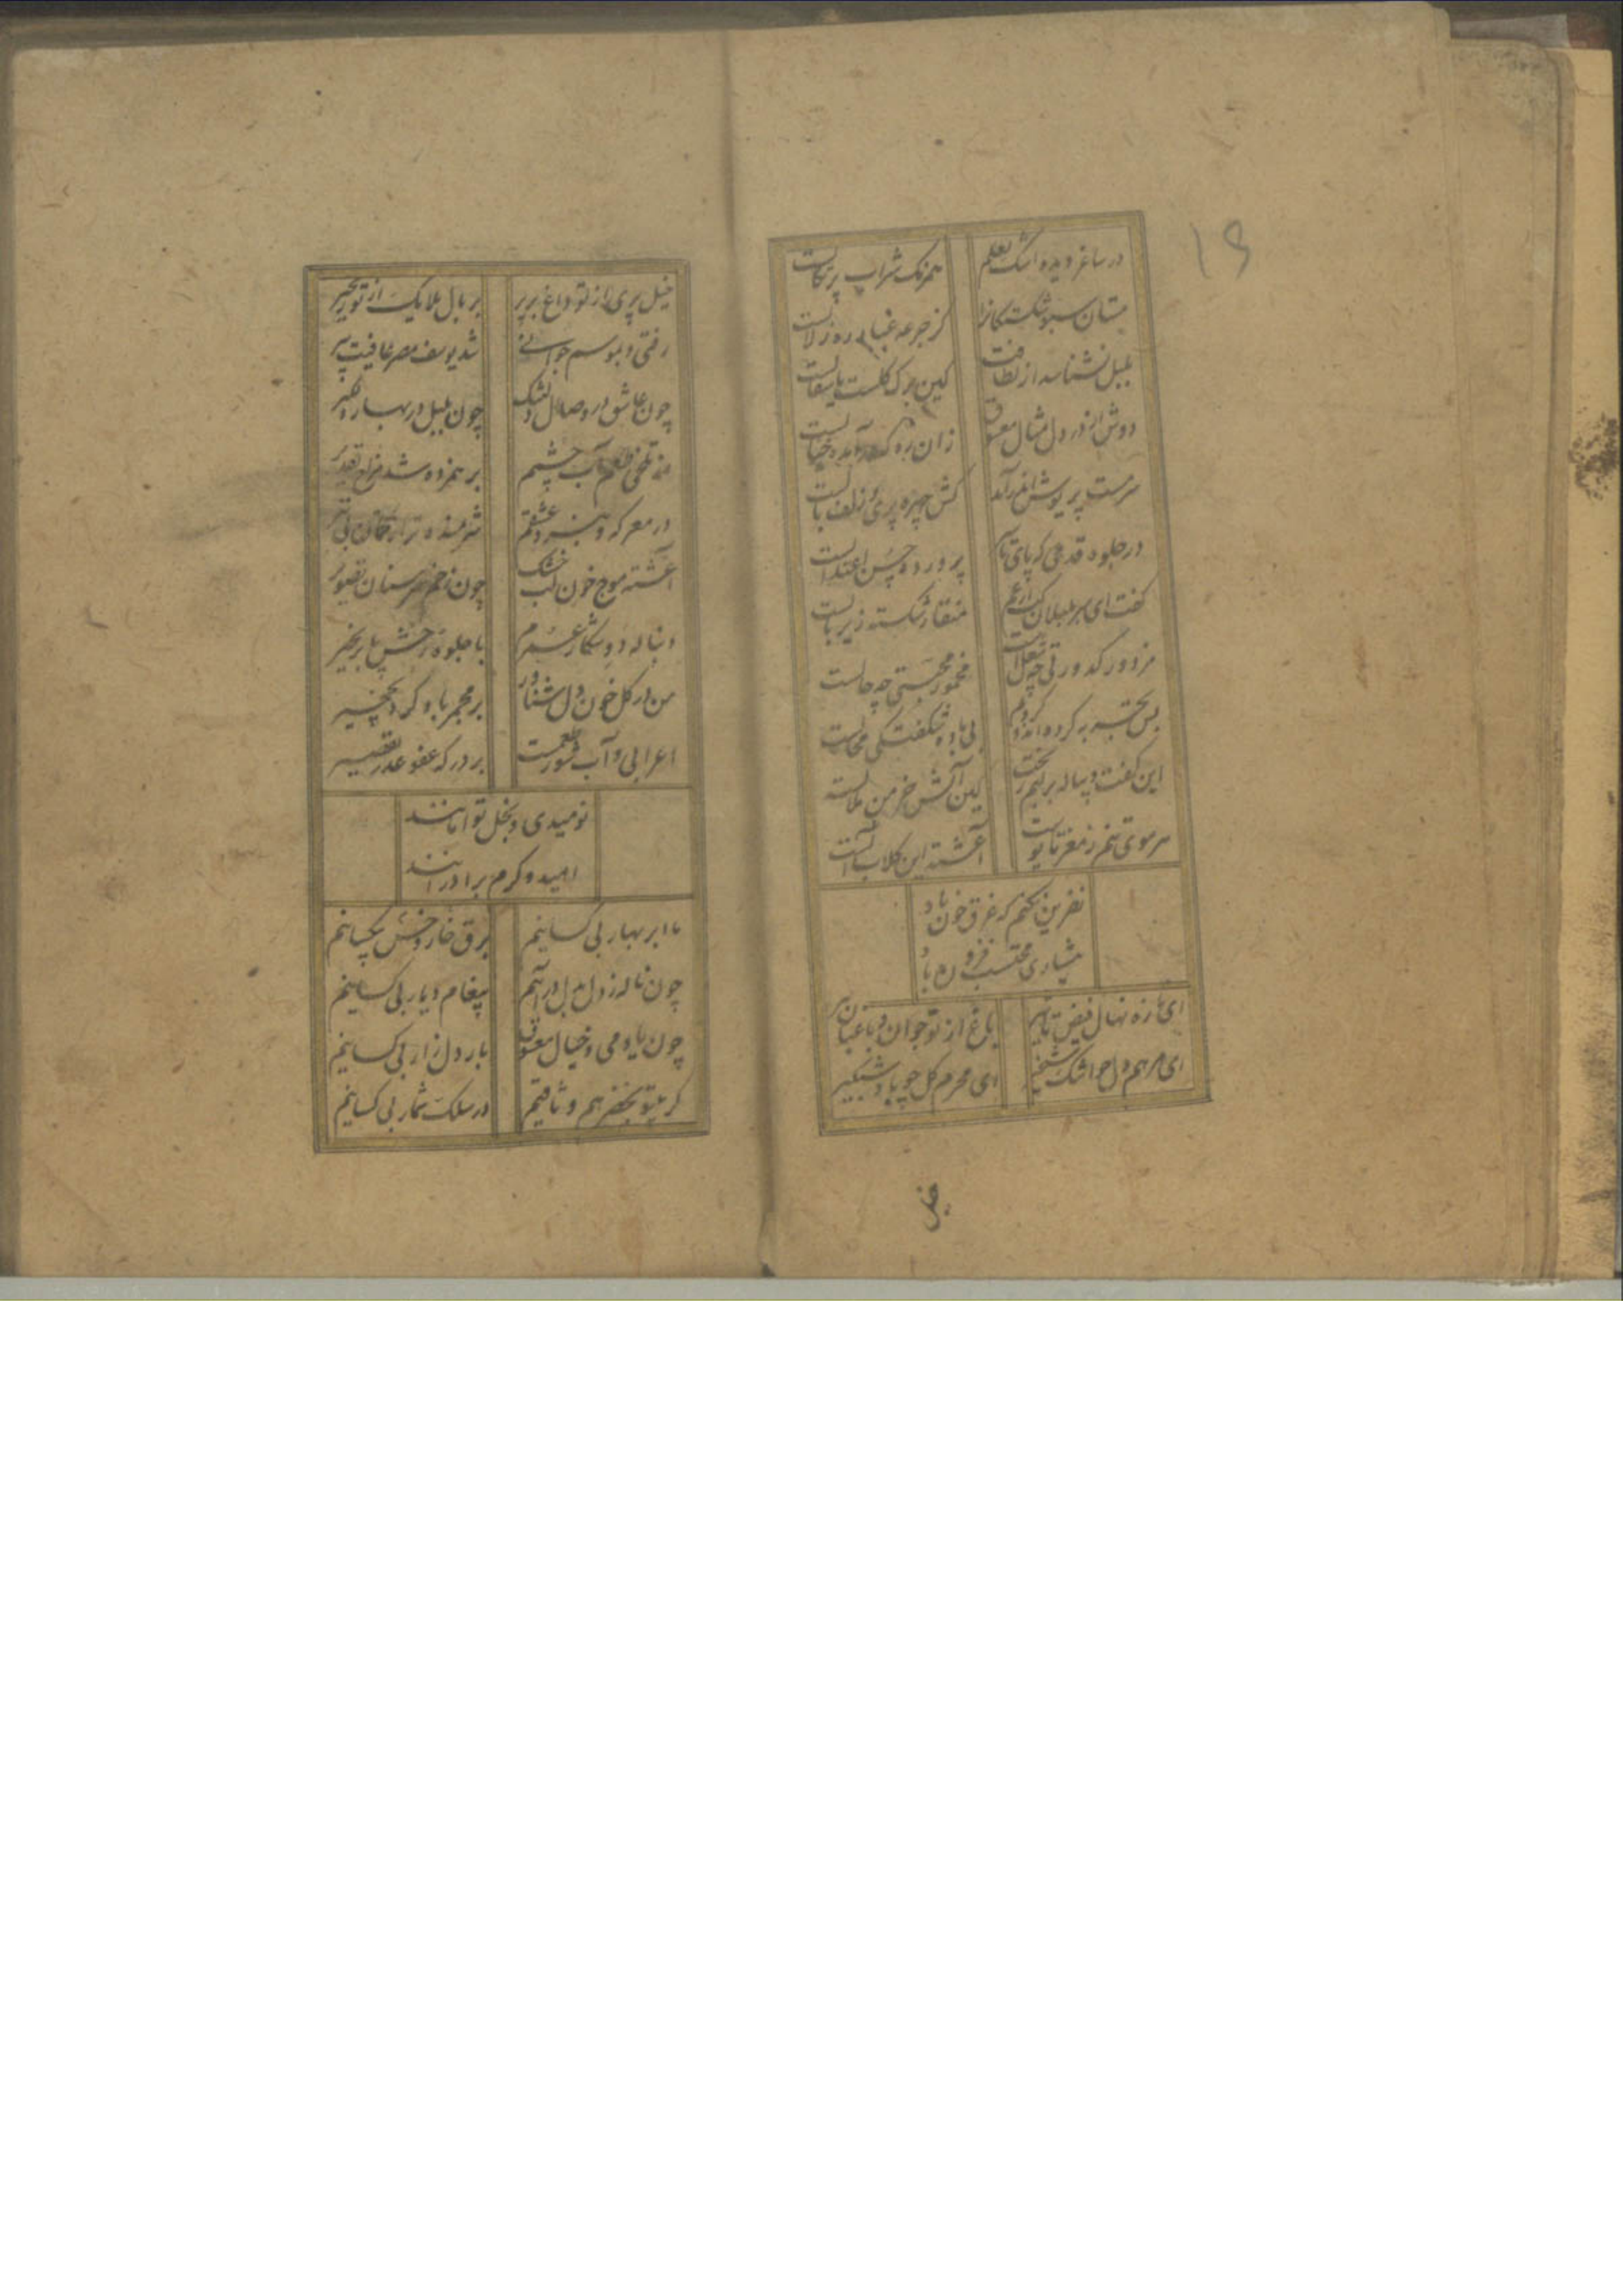 ۱۹
در ساغر دیده اشک لعلم همرنک شراب پرتکالست
مستان سبو شکسته کانرا کز جرعه غبار ره زلالست
بلبل نشناسد از لطافت کین برک کلست یا سفالست
دوش از در دل مثال معشوق زان ره که در آمده خیالست
سرمست پریوشی در آمد کش چهره پری و زلف بالست
در جلوه قدحی که پای تا سر پرورده حسن اعتدالست
کفت ای سر بلبلان که از غم منقار شکسته زیر بالست
مزدور کدورتی چه شغلست مخمور محبتی چه حالست
بس تجربه کرده‌اند و کردم بی باده شکفتکی محالست
این کفت و پیاله بر لبم ریخت کین آتش خرمن ملالست
هر موی تنم ز مغز تا پوست آغشته این کلاب آلست
نفرین نکنم که غرق خون باد
هشیاری محتسب فزون باد
ای تازه نهال فیض تاثیر باغ از تو جوان و باغبان پیر
ای مرهم دل جو اشک شبخیز ای محرم کل چو باد شبکیر
خیل
خیل پری از تو داغ بر پر بر بال ملایک از تو زنجیر
رفتی و بموسم جوانی شد یوسف مصر عافیت پیر
چون عاشق در وصال دلتنک چون بلبل در بهار دلکیر
از تلخی طعم آب چشمم بر همزده شد مزاج تقدیر
در معرکه و نبرد عشقم شرمنده‌تر از کمان بی تیر
آغشته موج خون لب خشک چون زخم سر سنان تصویر
دنباله دو شکار عشرم با جلوه رخش پا بزنجیر
من در کل خون دل شناور بر مجمر باده کرد نخچیر
اعرابی و آب شور طعمست بر درکه عفو عذر تقصیر
نومیدی و بخل توامانند
امید و کرم برادرانند
ما ابر بهار بی کسانیم برق خار و خس یکسانیم
چون ناله ز دل بدل در آییم پیغام و یار بی کسانیم
چون باده می و خیال معشوق بار دل زار بی کسانیم
کر عیسی و خضر هم وثاقیم در سلک شمار بی کسانیم